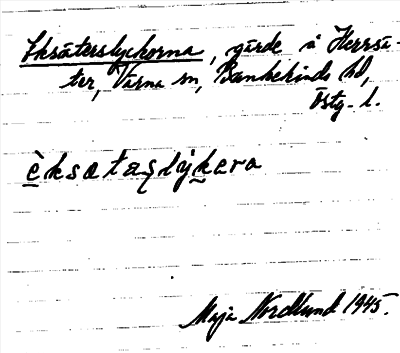 Eksäterslyckorna, gärde å Herrsä-
ter, Värna sn, Bankekinds hd,
Östg. l.
èksataslýkera
Maja Nordlund 1945.